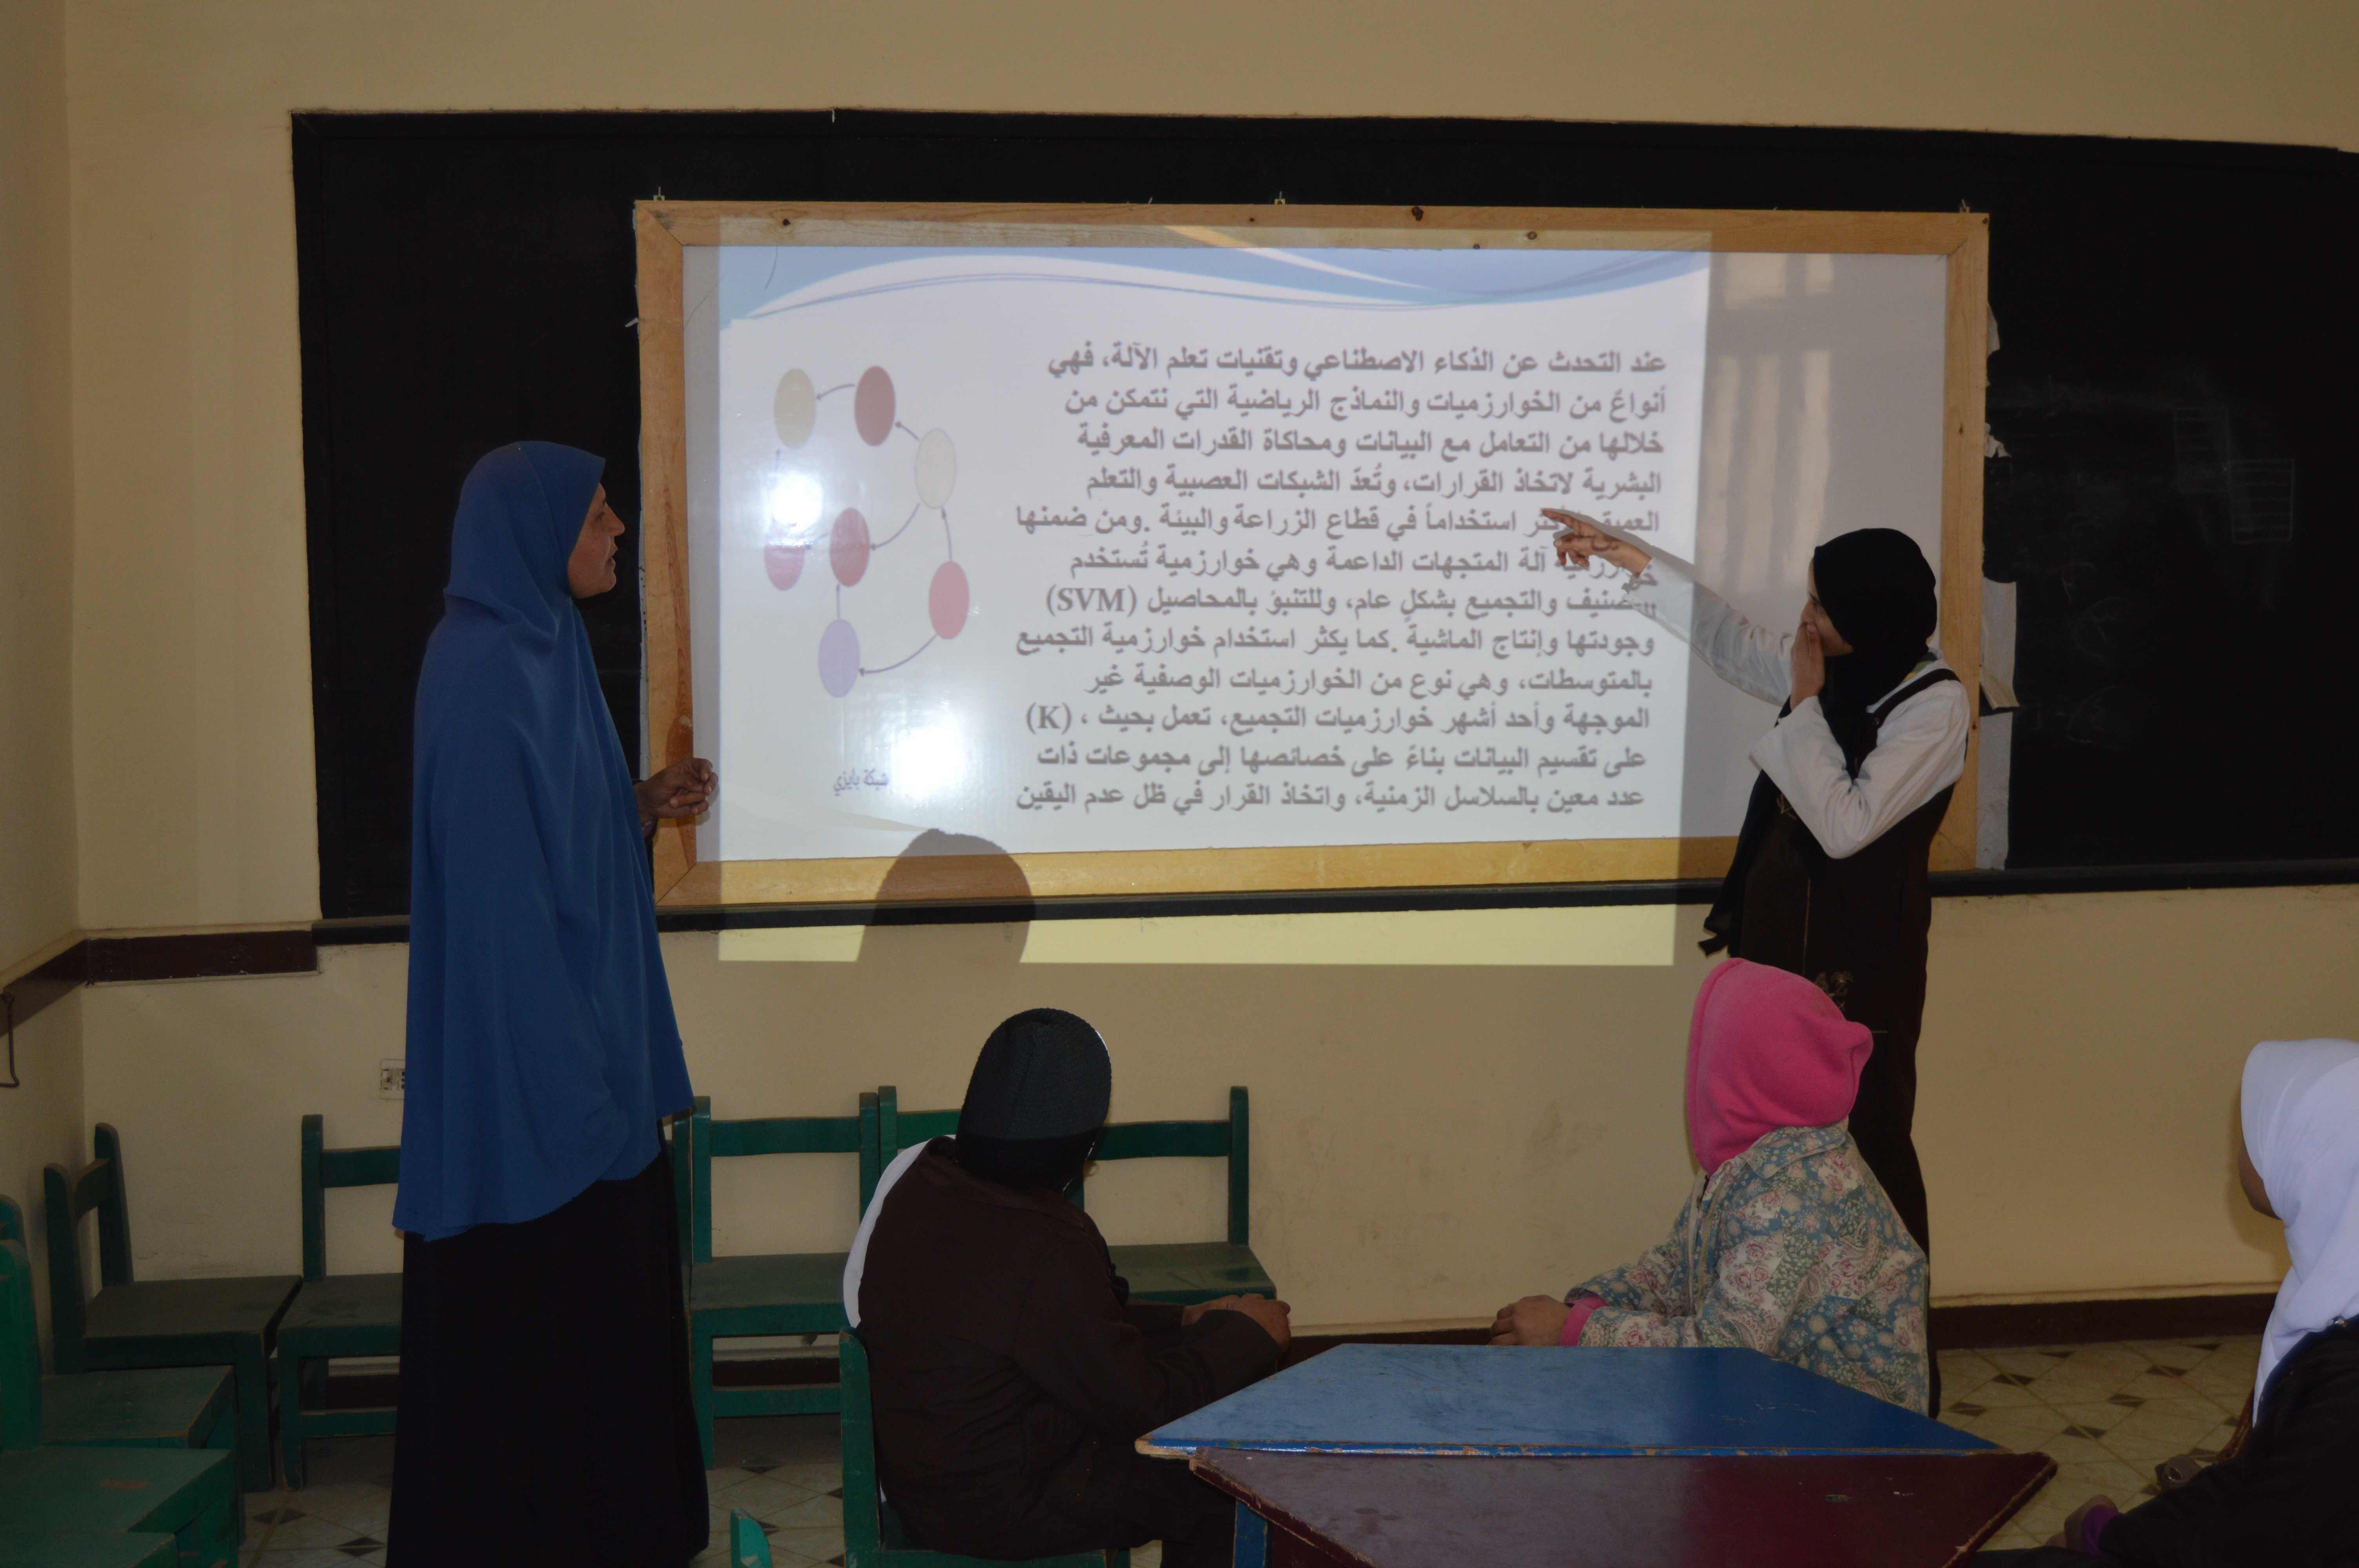 عند التحدث عن الذكاء الاصطناعي وتقنيات تعلم الآلة، فهي
أنواعً من الخوارزميات والنماذج الرياضية التي نتمكن من
خلالها من التعامل مع البيانات ومحاكاة القدرات المعرفية
البشرية لاتخاذ القرارات، وتُعدّ الشبكات العصبية والتعلم
استخداماً في قطاع الزراعة والبيئة .ومن ضمنها
آلة المتجهات الداعمة وهي خوارزمية تُستخدم
والتجميع بشكلٍ عام، وللتنبؤ بالمحاصيل (SVM)
وجودتها وإنتاج الماشية .كما يكثر استخدام خوارزمية التجميع
بالمتوسطات، وهي نوع من الخوارزميات الوصفية غير
الموجهة وأحد أشهر خوارزميات التجميع، تعمل بحيث ، (K)
على تقسيم البيانات بناءً على خصائصها إلى مجموعات ذات
عدد معين بالسلاسل الزمنية، واتخاذ القرار في ظل عدم اليقين
شبكة بايزي